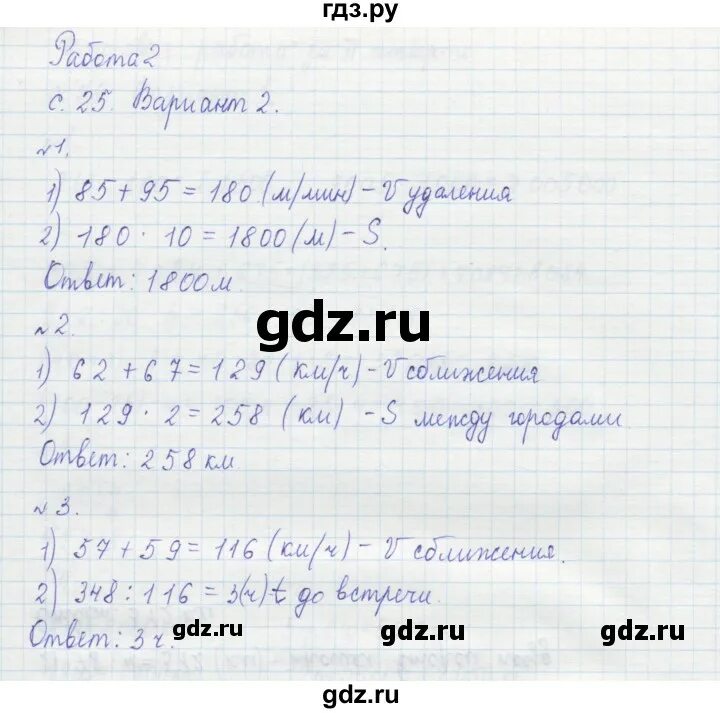 гдз.ру
Работа 2
с. 25. Вариант 2.
№1.
1) 85 + 95 = 180 (м/мин) - V удаления
2) 180 · 10 = 1800 (м) - S.
Ответ: 1800 м.
gdz.ru
№2.
1) 62 + 67 = 129 (км/ч) - V сближения
2) 129 · 2 = 258 (км) - S между городами
Ответ: 258 км
№3.
1) 57 + 59 = 116 (км/ч) - V сближения.
2) 348 : 116 = 3(ч) t до встречи.
Ответ: 3 ч.
gdz.ru gdz.ru
gdz.ru